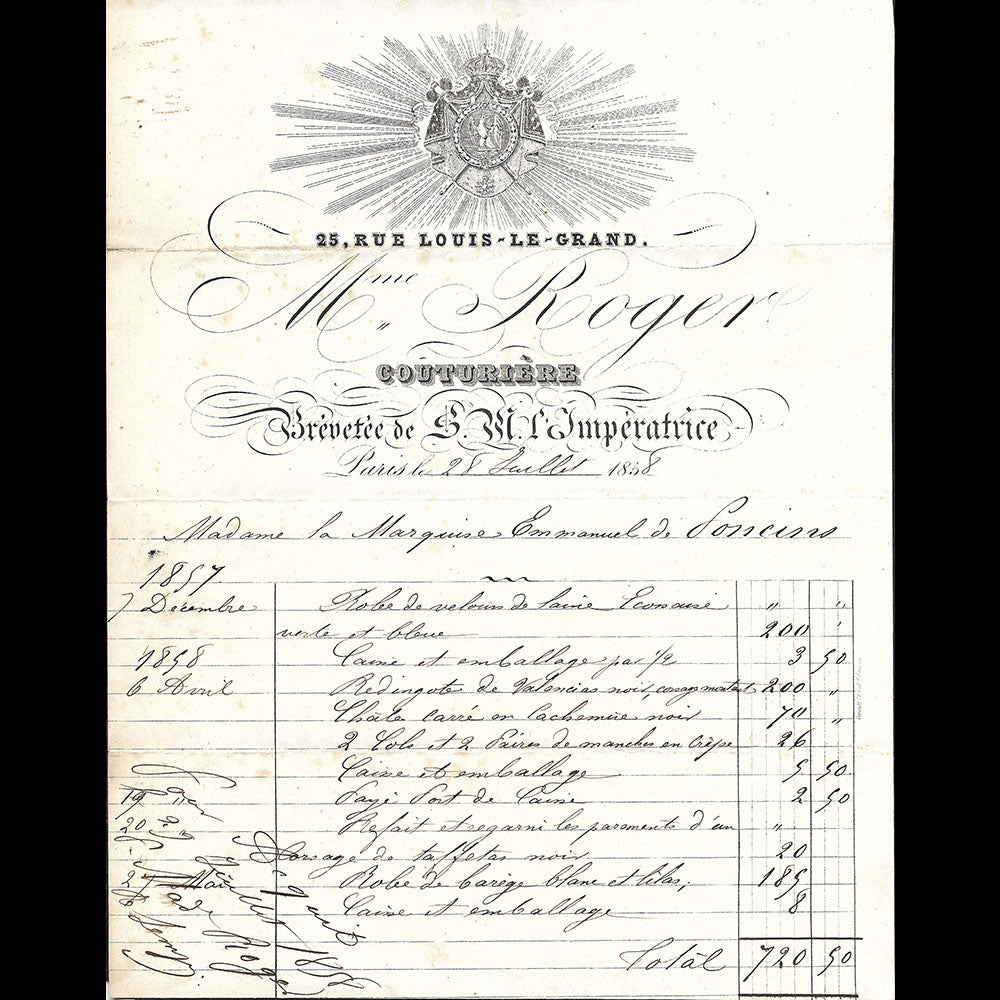 25, RUE LOUIS-LE-GRAND.
Mme Roger
COUTURIÈRE
Brévetée de S. M. l'Impératrice
Paris le 28 Juillet 1858
Madame la Marquise Emmanuel de Poncins
1857
7 Décembre Robe de velours de laine Ecossaise " "
verte et bleue 200 "
1858 Caisse et emballage par 1/2 3 50
6 Avril Redingote de Valencias noir, corsage montant 200 "
Châle carré en Cachemire noir 70 "
2 Cols et 2 Paires de manches en Crêpe 26
Caisse et emballage 5 50
Payé Port de Caisse 2 50
19 Refait et regarni les parements d'un "
20 Corsage de taffetas noir 20
27 Mai Robe de barège blanc et lilas, 185
Caisse et emballage 8
Total 720 50
Pour acquit
Juillet 1858
Roger